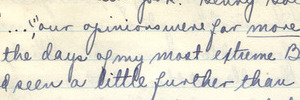 ..., "our opinions were far more
the days of my most extreme B
d seen a little further than